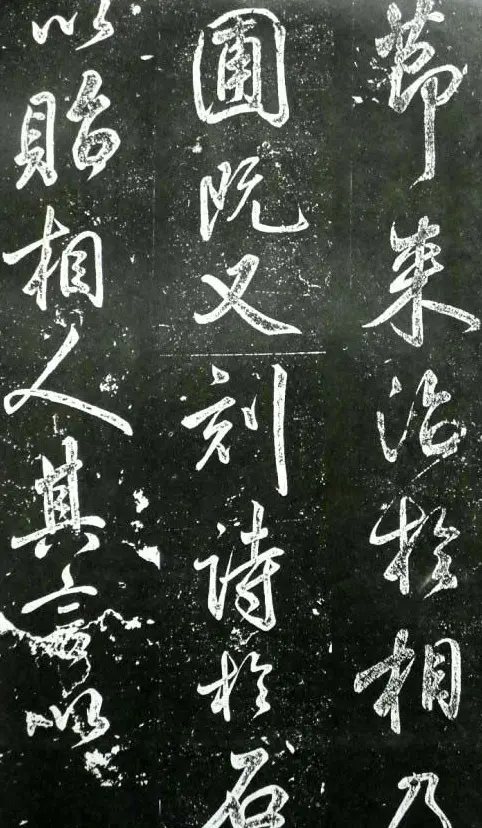 節來治於相乃
圃既又刻詩於石
以貽相人其言以